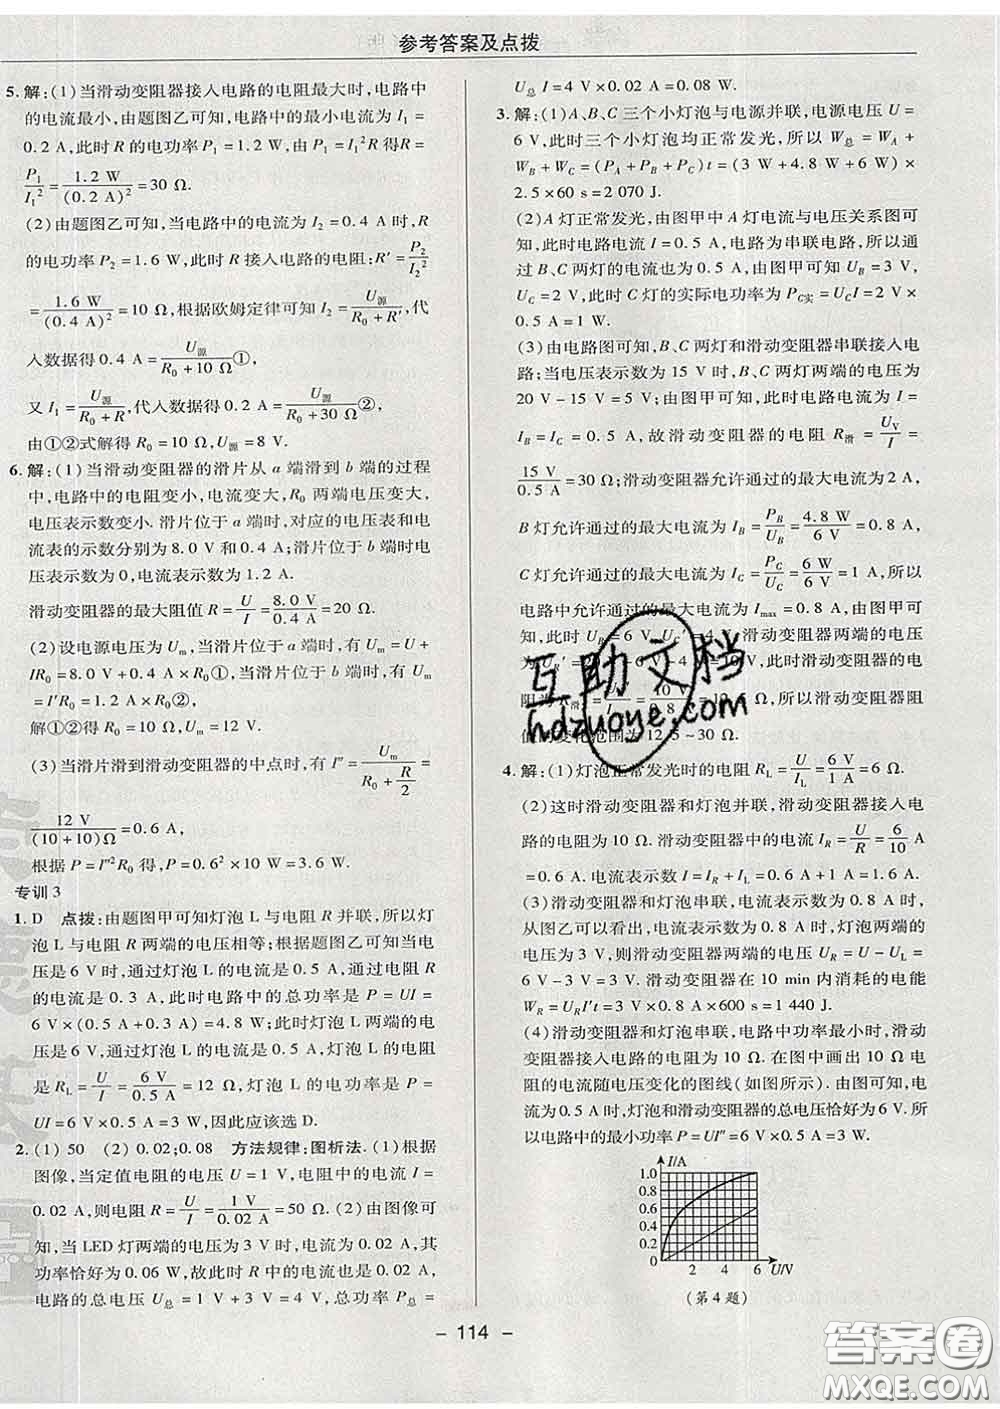 参考答案及点拨
5. 解:(1)当滑动变阻器接入电路的电阻最大时,电路中
的电流最小,由题图乙可知,电路中的最小电流为 I₁=
0.2 A,此时 R 的电功率 P₁=1.2 W,由 P₁=I₁²R 得 R=
P₁/I₁²=1.2 W/(0.2 A)²=30 Ω.
(2)由题图乙可知,当电路中的电流为 I₂=0.4 A 时,R
的电功率 P₂=1.6 W,此时 R 接入电路的电阻:R′=P₂/I₂²
=1.6 W/(0.4 A)²=10 Ω,根据欧姆定律可知 I₂=U源/(R₀+R′),代
入数据得 0.4 A=U源/(R₀+10 Ω)①,
又 I₁=U源/(R₀+R),代入数据得 0.2 A=U源/(R₀+30 Ω)②,
由①②式解得 R₀=10 Ω,U源=8 V.
6. 解:(1)当滑动变阻器的滑片从 a 端滑到 b 端的过程
中,电路中的电阻变小,电流变大,R₀ 两端电压变大,
电压表示数变小. 滑片位于 a 端时,对应的电压表和电
流表的示数分别为 8.0 V 和 0.4 A;滑片位于 b 端时电
压表示数为 0,电流表示数为 1.2 A.
滑动变阻器的最大阻值 R=U/I=8.0 V/0.4 A=20 Ω.
(2)设电源电压为 Uₘ,当滑片位于 a 端时,有 Uₘ=U+
IR₀=8.0 V+0.4 A×R₀①;当滑片位于 b 端时,有 Uₘ
=I′R₀=1.2 A×R₀②;
解①②可得 R₀=10 Ω,Uₘ=12 V.
(3)当滑片滑到滑动变阻器的中点时,有 I″=Uₘ/(R₀+R/2)=
12 V/(10+10)Ω=0.6 A,
根据 P=I″²R₀ 得,P=0.6²×10 W=3.6 W.
专训 3
1. D 点拨:由题图甲可知灯泡 L 与电阻 R 并联,所以灯
泡 L 与电阻 R 两端的电压相等;根据题图乙可知当电
压是 6 V 时,通过灯泡 L 的电流是 0.5 A,通过电阻 R
的电流是 0.3 A,此时电路中的总功率是 P=UI=
6 V×(0.5 A+0.3 A)=4.8 W;此时灯泡 L 两端的电
压是 6 V,通过灯泡 L 的电流是 0.5 A,灯泡 L 的电阻
是 R_L=U/I=6 V/0.5 A=12 Ω,灯泡 L 的电功率是 P=
UI=6 V×0.5 A=3 W,因此应该选 D.
2. (1)50 (2)0.02;0.08 方法规律:图析法.(1)根据
图像,当定值电阻的电压 U=1 V,电阻中的电流 I=
0.02 A,则电阻 R=U/I=1 V/0.02 A=50 Ω.(2)由图像可
知,当 LED 灯两端的电压为 3 V 时,电流为 0.02 A,其
功率恰好为 0.06 W,故此时 R 中的电流也是 0.02 A,
电路的总电压 U总=1 V+3 V=4 V,总功率 P总=
U总 I=4 V×0.02 A=0.08 W.
3. 解:(1)A、B、C 三个小灯泡与电源并联,电源电压 U=
6 V,此时三个小灯泡均正常发光,所以 W总=W_A+
W_B+W_C=(P_A+P_B+P_C)t=(3 W+4.8 W+6 W)×
2.5×60 s=2 070 J.
(2)A 灯正常发光,由图甲中 A 灯电流与电压关系图可
知,此时电路电流 I=0.5 A,电路为串联电路,所以通
过 B、C 两灯的电流也为 0.5 A,由图甲可知 U_B=3 V,
U_C=2 V,此时 C 灯的实际电功率为 P_C实=U_C I=2 V×
0.5 A=1 W.
(3)由电路图可知,B、C 两灯和滑动变阻器串联接入电
路;当电压表示数为 15 V 时,B、C 两灯两端的电压为
20 V-15 V=5 V;由图甲可知,此时电路电流为 I=
I_B=I_C=0.5 A,故滑动变阻器的电阻 R滑=U_V/I=
15 V/0.5 A=30 Ω;滑动变阻器允许通过的最大电流为 2 A,
B 灯允许通过的最大电流为 I_B=P_B/U_B=4.8 W/6 V=0.8 A,
C 灯允许通过的最大电流为 I_C=P_C/U_C=6 W/6 V=1 A,所以
电路中允许通过的最大电流为 Imax=0.8 A,由图甲可
知,此时 U_B′=6 V,U_C′=4 V,滑动变阻器两端的电压
为 U_V′=20 V-6 V-4 V=10 V,此时滑动变阻器的电
阻为 R滑′=10 V/0.8 A=12.5 Ω,所以滑动变阻器阻
值的变化范围为 12.5~30 Ω.
互助文档
hdzuoye.com
4. 解:(1)灯泡正常发光时的电阻 R_L=U/I_L=6 V/1 A=6 Ω.
(2)这时滑动变阻器和灯泡并联,滑动变阻器接入电
路的电阻为 10 Ω. 滑动变阻器中的电流 I_R=U/R=6/10 A
=0.6 A. 电流表示数 I=I_R+I_L=0.6 A+1 A=1.6 A.
(3)滑动变阻器和灯泡串联,电流表示数为 0.8 A 时,
从图乙可以看出,灯泡的电流也是 0.8 A,灯泡两端的
电压为 3 V,则滑动变阻器两端的电压 U_R=U-U_L=
6 V-3 V=3 V. 滑动变阻器在 10 min 内消耗的电能
W_R=U_R I′t=3 V×0.8 A×600 s=1 440 J.
(4)滑动变阻器和灯泡串联,电路中功率最小时,滑动
变阻器接入电路的电阻为 10 Ω. 在图中画出 10 Ω 电
阻的电流随电压变化的图线(如图所示). 由图可知,电流
为 0.5 A 时,灯泡和滑动变阻器的总电压恰好为 6 V. 所
以电路中的最小功率 P=UI″=6 V×0.5 A=3 W.
I/A
1.0
0.8
0.6
0.4
0.2
0
2 4 6 U/V
(第 4 题)
- 114 -
答案圈
MXQE.COM